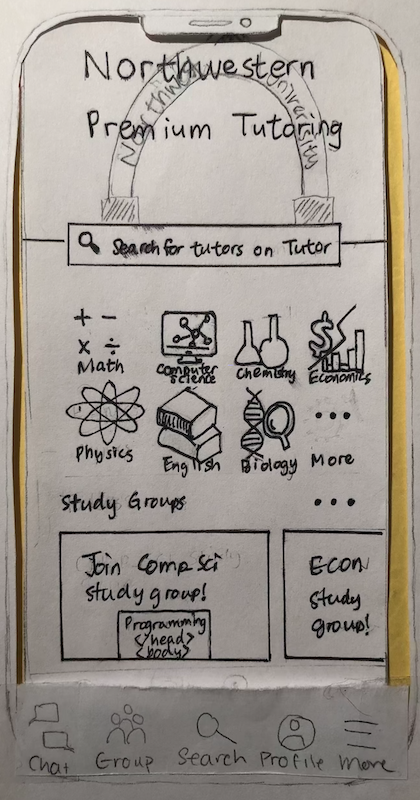 Northwestern
Northwestern University
Premium Tutoring
Search for tutors on Tutor
+ -
x ÷
Math
Computer Science
Chemistry
$
Economics
Physics
English
Biology
...
More
Study Groups
...
Join Comp Sci
study group!
Programming
</head>
<body>
ECON
study
group!
Chat
Group
Search
Profile
More